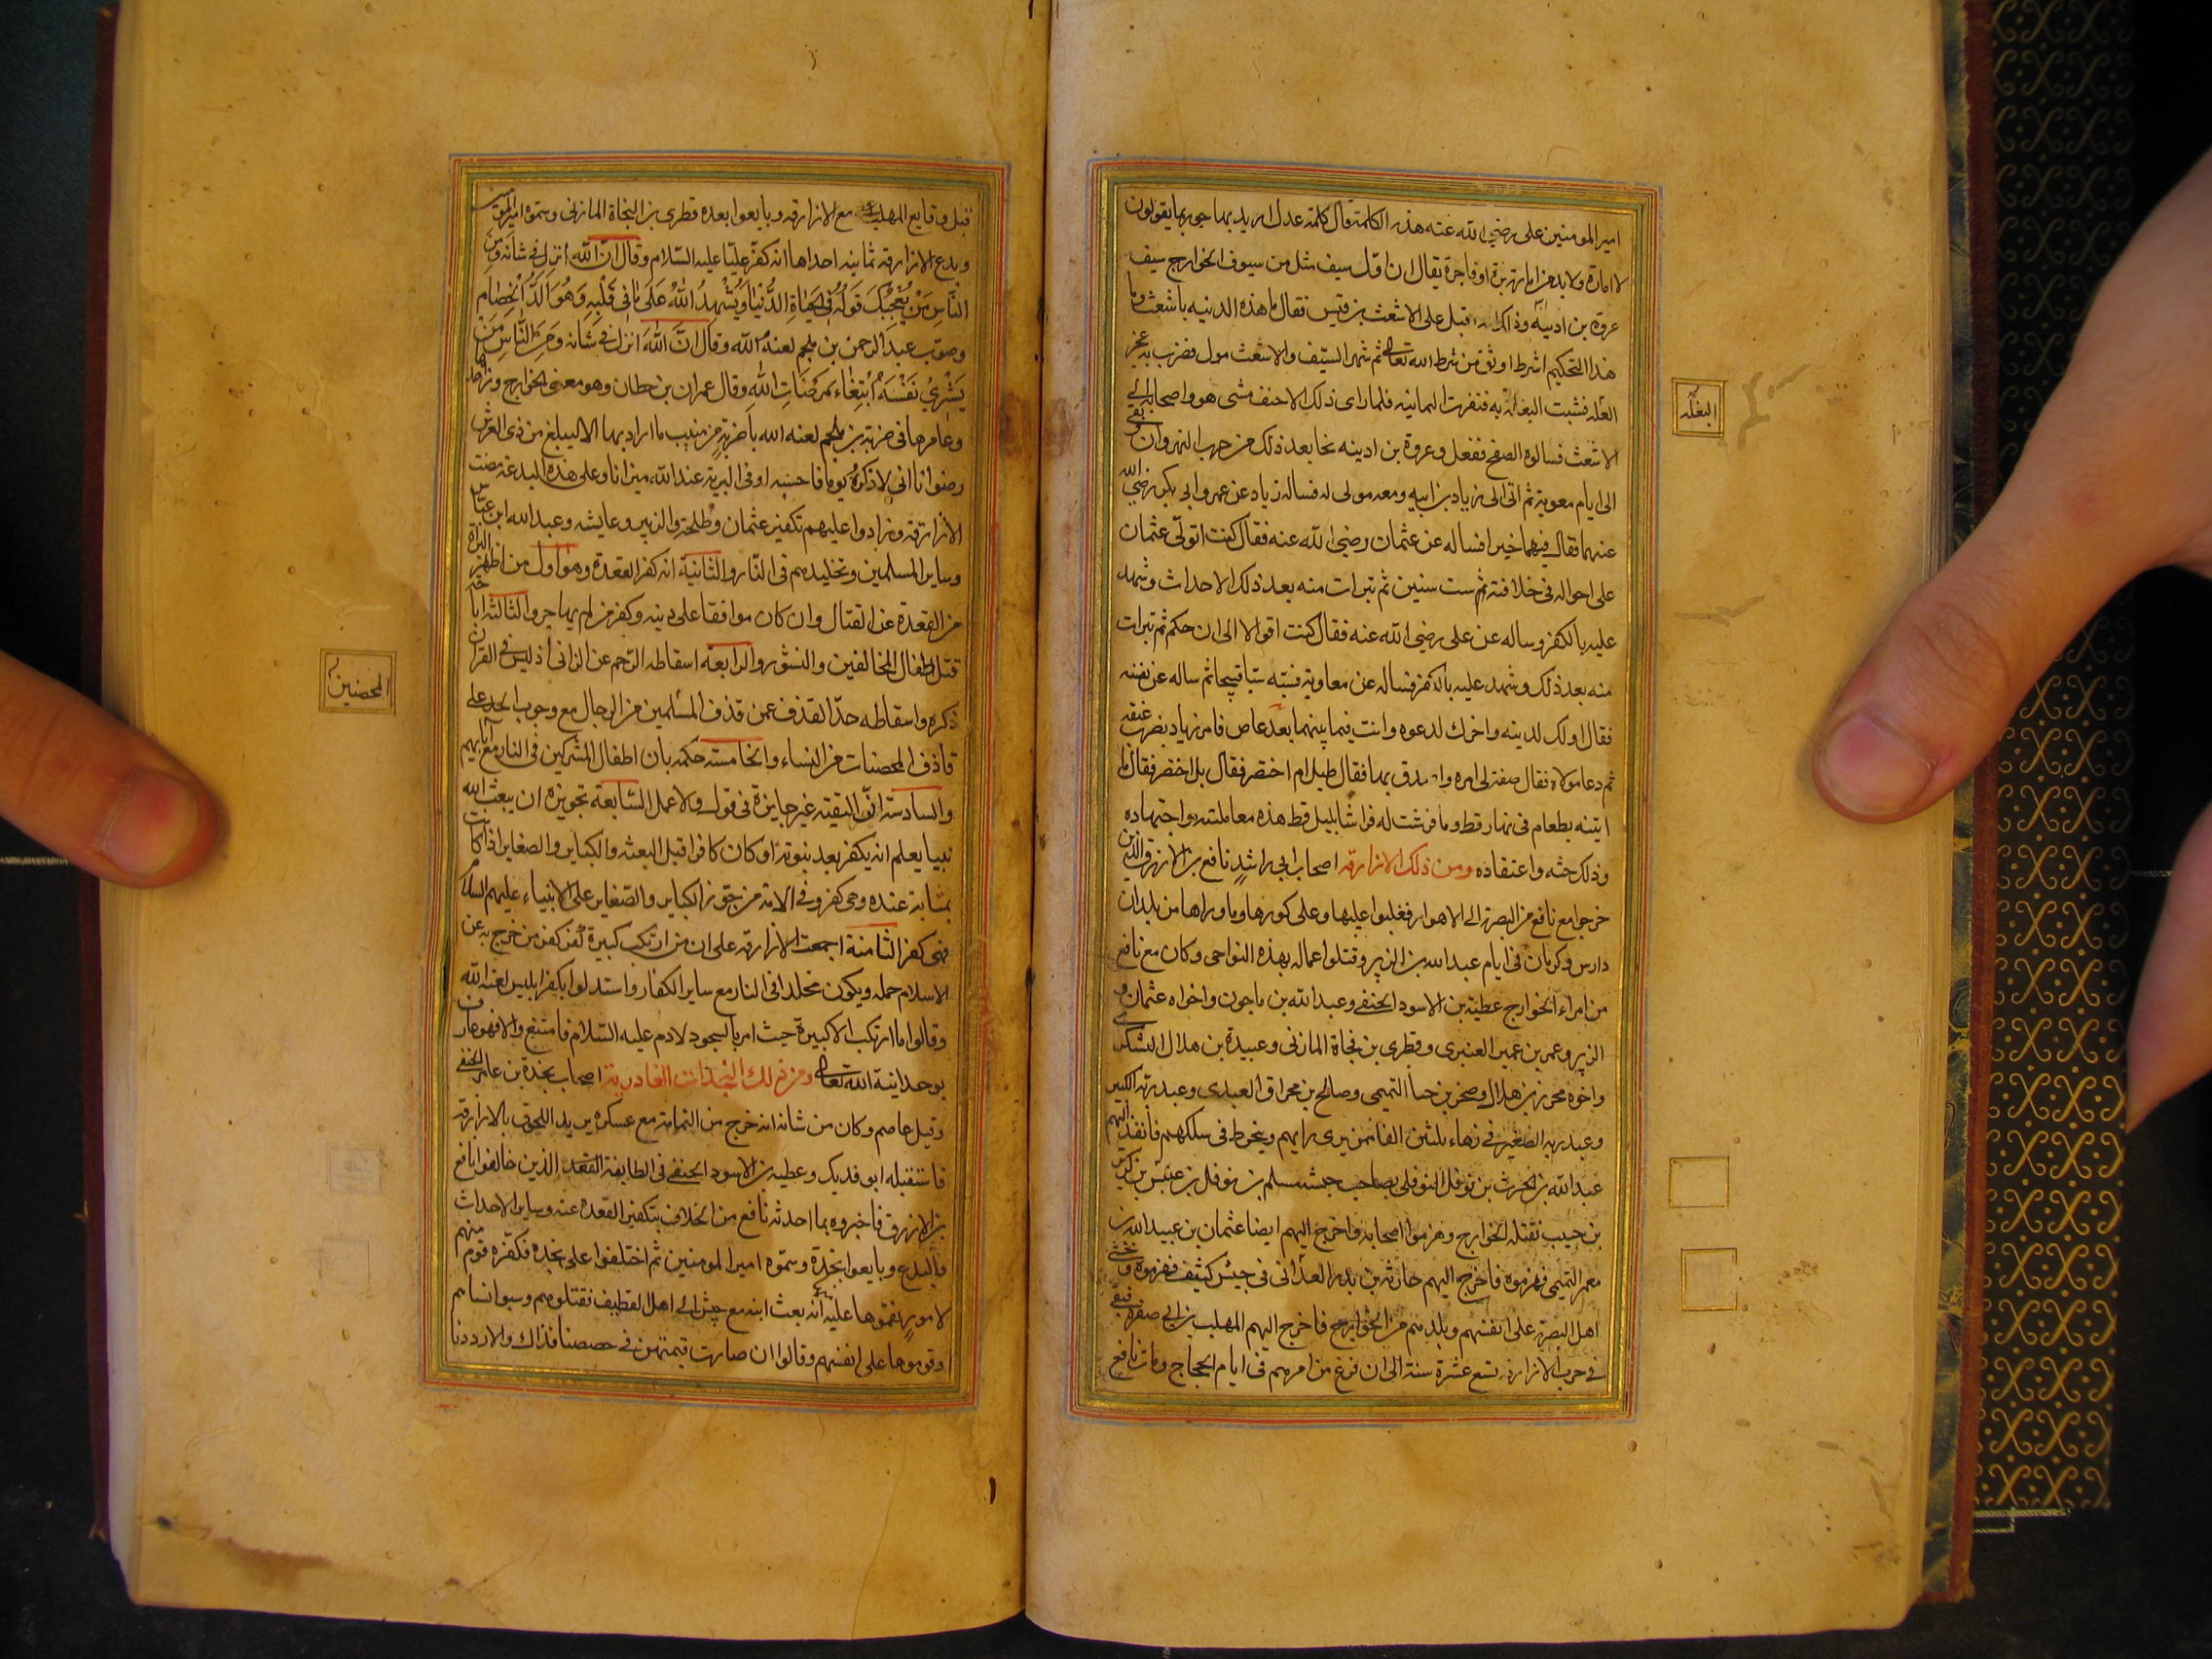 امير المومنين على رضي الله عنه هذه الكلمة قال كلمة عدل اريد بها جور بما يقولون
لا امارة ولا بد من امارة برة او فاجرة يقال ان اول سيف سل من سيوف الخوارج سيف
عروة بن ادينه وذاك انه اقبل على الاشعث بن قيس فقال ما هذه الدنيه يا شعث وما
هذا التحكيم اشرط اوثق من شرط الله تعالى ثم شهر السيف والاشعث مول فضرب به عجز
البغله فشبت البغله به فنفرت اليمانيه فلما راى ذلك الاحنف مشى هو واصحابه الى
الاشعث فسالوه الصفح ففعل وعروة بن ادينه نجا بعد ذلك من حرب النهروان وبقي
الى ايام معوية ثم اتى الى زياد بن ابيه ومعه مولى له فساله زياد عن عمر وابى بكر رضي الله
عنهما فقال فيهما خيرا فساله عن عثمان رضي الله عنه فقال كنت اتولى عثمان
على احواله فى خلافته ست سنين ثم تبرات منه بعد ذلك الاحداث وشهد
عليه بالكفر وساله عن على رضي الله عنه فقال كنت اتولاه الى ان حكم ثم تبرات
منه بعد ذلك وشهد عليه بالكفر فساله عن معاوية فسبه سبا قبيحا ثم ساله عن نفسه
فقال اولك لدينه واخرك لدعوه وانت فيما بينهما بعد عاص فامر زياد بضرب عنقه
ثم دعا مولاه فقال صف لى امره واصدق بها فقال اطيل ام اختصر فقال بل اختصر فقال ما
اتيته بطعام فى نهار قط وما فرشت له فراشا بليل قط هذه معاملته واجتهاده
وذلك خبثه واعتقاده ومن ذلك الازارقه اصحاب ابي راشد نافع بن الازرق الذين
خرجوا مع نافع من البصرة الى الاهواز فغلبوا عليها وعلى كورها وما وراها من بلدان
دارس وكرمان فى ايام عبد الله بن الزبير وقتلوا عماله بهذه النواحى وكان مع نافع
من امراء الخوارج عطية بن الاسود الحنفى وعبد الله بن ماجون واخواه عثمان و
الزبير وعمر بن عمير العنبرى وقطرى بن فجاة المازنى وعبيدة بن هلال اليشكرى
واخوه محرز بن هلال وصخر بن حبا التميمى وصالح بن محراق العبدى وعبد ربه الكبير
وعبد ربه الصغير فى زهاء ثلثين الفا ممن يرى رايهم وينخرط فى سلكهم فانفذ اليهم
عبد الله بن الحرث بن نوفل النوفلى بصاحب جيشه مسلم بن
بن حبيب فقتله الخوارج وهزموا اصحابه فاخرج اليهم ايضا عثمان بن عبيد الله بن
معمر التميمى فهزموه فاخرج اليهم حارثه بن بدر العدانى فى جيش كثيف فهزموه وخشى
اهل البصرة على انفسهم وبلدهم من الخوارج فاخرج اليهم المهلب بن ابي صفره فبقى
فى حرب الازارقه تسع عشرة سنة الى ان فرغ من امرهم فى ايام الحجاج ومات نافع
البغله
قبل وقايع المهلب مع الازارقه وبايعوا بعده قطرى بن الفجاة المازنى وسموه امير المومنين
وبدع الازارقه ثمانيه احداها انه كفر عليا عليه السلام وقال ان الله انزل فى شانه ومن
الناس من يعجبك قوله فى الحياة الدنيا ويشهد الله على ما فى قلبه وهو الد الخصام
وصوب عبد الرحمن بن ملجم لعنه الله وقال ان الله انزل فى شانه ومن الناس من
يشري نفسه ابتغاء مرضات الله وقال عمران بن حطان وهو مفتى الخوارج وزاهدها
وشاعرها فى ضربة بن ملجم لعنه الله يا ضربة من منيب ما اراد بها الا ليبلغ من ذى العرش
رضوانا انى لاذكره يوما فاحسبه اوفى البرية عند الله ميزانا وعلى هذه البدعة مضت
الازارقة وزادوا عليهم تكفير عثمان وطلحة والزبير وعايشه وعبد الله ابن عباس
وساير المسلمين وتخليدهم فى النار والثانية انه كفر القعدة وهو اول من اظهر البراة
من القعدة عن القتال وان كان موافقا على دينه وكفر من لم يهاجر والثالثة اباحة
قتل اطفال المخالفين والنسوة والرابعة اسقاطه الرجم عن الزانى اذ ليس فى القران
ذكره واسقاطه حد القذف عمن قذف المسلمين من الرجال مع وجوب الحد على
قاذف المحصنات من النساء والخامسة حكمه بان اطفال المشركين فى النار مع آبايهم
والسادسة ان التقيه غير جايزة فى قول ولا عمل السابعة تجويزه ان يبعث الله
نبيا يعلم انه يكفر بعد نبوته او كان كافرا قبل البعثه والكباير والصغاير اذا كانت
بمثابة عنده وهى كفر وفى الامة من جوز الكباير والصغاير على الانبياء عليهم السلام
فهى كفر الثامنة اجمعت الازارقه على ان من ارتكب كبيرة كفر كفر من خرج به عن
الاسلام جمله ويكون مخلدا فى النار مع ساير الكفار واستدلوا بكفر ابليس لعنه الله
وقالوا ما ارتكب الا كبيرة حيث امر بالسجود لادم عليه السلام فامتنع والا فهو عارف
بوحدانية الله تعالى ومن ذلك النجدات العاذرية اصحاب نجدة بن عامر الحنفى
وقيل عاصم وكان من شانه انه خرج من اليمامة مع عسكره يريد اللحوق بالازارقه
فاستقبله ابو فديك وعطيه بن الاسود الحنفى فى الطايفة القعد الذين خالفوا نافع
بن الازرق فاخبروه بما احدثه نافع من الخلاف بتكفير القعدة عنه وساير الاحداث
والبدع وبايعوا نجدة وسموه امير المومنين ثم اختلفوا على نجده فكفره قوم منهم
لامور نقموها عليه انه بعث ابنه مع جيش الى اهل القطيف فقتلوهم وسبوا نساهم
وقوموها على انفسهم وقالوا ان صارت قيمتهن فى حصصنا فذاك والا رددنا
المحصنين